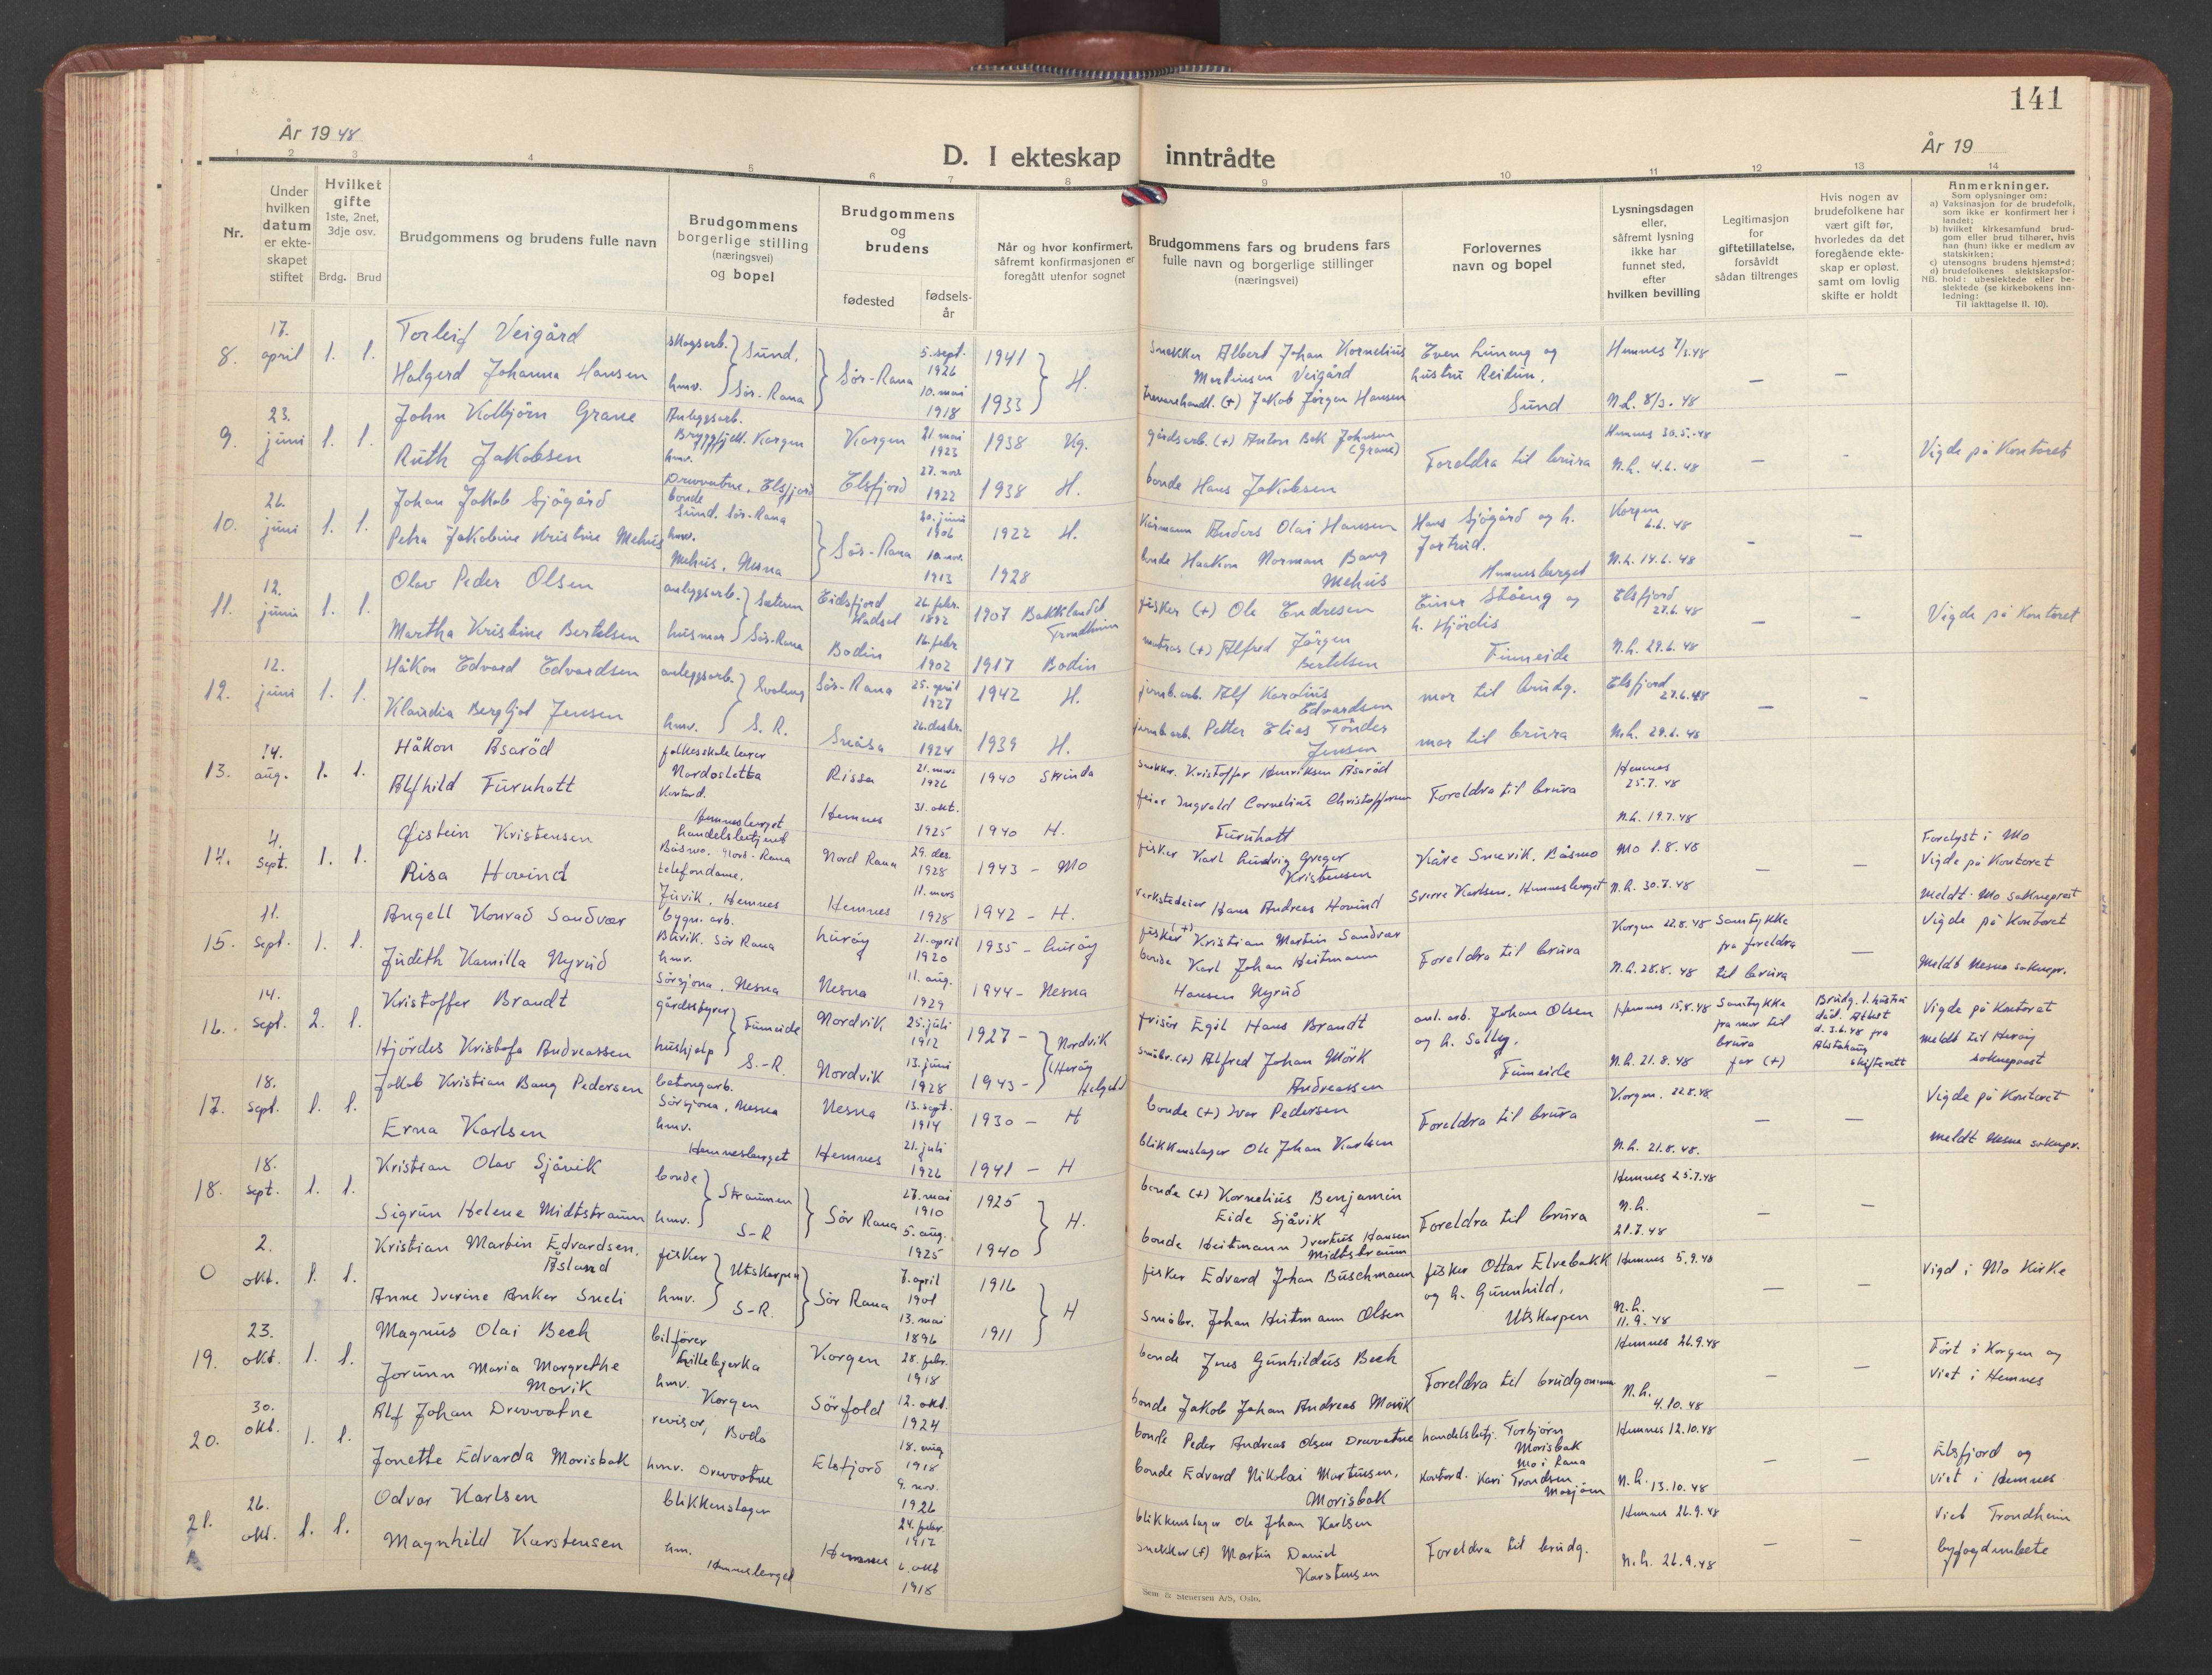 141
År 1948
År 19
D. I ekteskap inntrådte
1 2 3 4 5 6 7 8 9 10 11 12 13 14
Nr.
Under hvilken datum er ekteskapet stiftet
Hvilket gifte 1ste, 2net, 3dje osv.
Brdg. Brud
Brudgommens og brudens fulle navn
Brudgommens borgerlige stilling (næringsvei) og bopel
Brudgommens og brudens
fødested
fødselsår
Når og hvor konfirmert, såfremt konfirmasjonen er foregått utenfor sognet
Brudgommens fars og brudens fars fulle navn og borgerlige stillinger (næringsvei)
Forlovernes navn og bopel
Lysningsdagen eller, såfremt lysning ikke har funnet sted, efter hvilken bevilling
Legitimasjon for giftetillatelse, forsåvidt sådan tiltrenges
Hvis nogen av brudefolkene har vært gift før, hvorledes da det foregående ekteskap er opløst, samt om lovlig skifte er holdt
Anmerkninger.
Som oplysninger om:
a) Vaksinasjon for de brudefolk, som ikke er konfirmert her i landet;
b) hvilket kirkesamfund brudgom eller brud tilhører, hvis han (hun) ikke er medlem av statskirken;
c) utensogns brudens hjemsted;
d) brudefolkenes slektskapsforhold: ubeslektede eller beslektede (se kirkebokens innledning:
NB. Til iakttagelse II. 10).
8. 17. april 1. 1. Torleif Veigård skogsarb. Sund, Sør-Rana 5. sept. 1926 1941 H. snekker Albert Johan Kornelius Martinsen Veigård Even Luneng og hustru Reidun, Sund Hemnes 7/3.48 — —
Halgerd Johanna Hansen hmv. Sør-Rana 10. mai 1918 1933 trevarehandl. (+) Jakob Jørgen Hansen N.L. 8/3.48
9. 23. juni 1. 1. John Kolbjörn Grane Anleggsarb. Bryggfjell. Korgen Korgen 21. mai 1923 1938 Kg. gårdsarb. (+) Anton Bek Johnsen (Grane) Foreldra til brura Hemnes 30.5.48 — - Vigde på Kontoret
Ruth Jakobsen hmv. Drevvatne, Elsfjord Elsfjord 27. nov. 1922 1938 H. bonde Hans Jakobsen N.L. 4.6.48
10. 26. juni 1. 1. Johan Jakob Sjögård bonde Sund. Sør-Rana Sør-Rana 20. juni 1906 1922 H. Anders Olai Hansen Hans Sjögård og h. Jostrud. Hemnesberget Korgen 6.6.48 — —
Petra Jakobine Kristine Mehus hmv. Mehus, Nesna 10. nov. 1913 1928 bonde Haakon Norman Bang Mehus N.L. 14.6.48
11. 12. juni 1. 1. Olav Peder Olsen anleggsarb. Sætern Eidsfjord Hadsel 26. febr. 1892 1907 Bakklandet Trondheim fisker (+) Ole Endresen Einar Ståeng og h. Hjördis Finneide Elsfjord 27.6.48 — — Vigde på Kontoret
Martha Kristine Bertelsen husmor Sør-Rana Bodin 16. febr 1902 1917 Bodin matros (+) Alfred Jörgen Bertelsen N.L. 29.6.48
12. 12. juni 1. 1. Håkon Edvard Edvardsen anleggsarb. Svaleng Sør-Rana 25. april 1927 1942 H. jernb.arb. Alf Karolius Edvardsen mor til brudg. Elsfjord 27.6.48 — —
Klaudia Bergljot Jensen hmv. S.R. Snåsa 26. desbr. 1924 1939 H. jernb.arb. Petter Elias Tönder Jensen mor til brura N.L. 29.6.48
13. 14. aug. 1. 1. Håkon Asaröd folkeskolelærer Nordosletta Rissa 21. mars 1926 1940 Strinda snekker. Kristoffer Henriksen Åsaröd Foreldra til brura Hemnes 25.7.48
Alfhild Furuhatt Kontord. Hemnesberget Hemnes 31. okt. 1925 1940 H. feier Ingvald Cornelius Christoffersen Furuhatt N.L. 19.7.48
14. 4. sept. 1. 1. Øistein Kristensen handelsbetjent Båsmo. Nord-Rana Nord Rana 29. des. 1928 1943 - Mo fisker Karl Ludvig Greger Kristensen Kåre Smevik. Båsmo Mo 1.8.48 — — Forelyst i Mo Vigde på Kontoret
Risa Hovind telefondame. Juvik, Hemnes Hemnes 11. mars 1928 1942 - H. verkstedeier Hans Andreas Hovind Sverre Karlsen. Hemnesberget N.L. 30.7.48 Meldt Mo sokneprest
15. 11. sept. 1. 1. Angell Konrad Sandvær bygn. arb. Buvik. Sör Rana Luröy 21. april 1920 1935 - Luröy fisker (+) Kristian Martin Sandvær Foreldra til brura Korgen 22.8.48 Samtykke fra foreldra til brura — Vigde på Kontoret
Judith Kamilla Nyrud hmv. Sörsjona, Nesna Nesna 11. aug. 1929 1944 - Nesna bonde Karl Johan Heitmann Hansen Nyrud N.L. 28.8.48 Meldt Nesna soknepr.
16. 14. sept. 2. 1. Kristoffer Brandt gårdsstyrer Finneide Nordvik 25. juli 1912 1927 - Nordvik (Heröy Helgeland frisör Egil Hans Brandt anl. arb. Johan Olsen og h. Sally, Finneide Hemnes 15.8.48 Samtykke fra mor til brura far (+) Brudg. 1. hustru død. Attest d. 3.6.48 fra Alstahaug skifterett Vigde på Kontoret
Hjördis Kristofa Andreassen hushjelp S.-R. Nordvik 13. juni 1928 1943 - småbr. (+) Alfred Johan Mörk Andreassen N.L. 21.8.48 meldt til Heröy sokneprest
17. 18. sept. 1. 1. Jakob Kristian Bang Pedersen betongarb. Sörsjona, Nesna Nesna 13. sept. 1914 1930 - H bonde (+) Ivar Pedersen Foreldra til brura Korgen. 22.8.48 — — Vigde på Kontoret
Erna Karlsen hmv. Hemnesberget Hemnes 21. juli 1926 1941 - H blikkenslager Ole Johan Karlsen N.L. 21.8.48. meldt Nesna soknepr.
18. 18. sept. 1. 1. Kristian Olav Sjåvik bonde Straumen Sör Rana 27. mai 1910 1925 H. bonde (+) Kornelius Benjamin Eide Sjåvik Foreldra til brura Hemnes 25.7.48 — —
Sigrun Helene Midtstraum hmv. S-R 5. aug. 1925 1940 bonde Heitmann Ivertus Hansen Midtstraum N.L. 21.7.48
O 2. okt. 1. 1. Kristian Martin Edvardsen, Åsland fisker Utskarpen Sör Rana 7. april 1901 1916 H fisker Edvard Johan Buschmann fisker Ottar Elvebakk og h. Gunnhild, Utskarpen Hemnes 5.9.48 — — Vigd i Mo Kirke
Anne Iverine Anker Sneli hmv. S-R. 13. mai 1896 1911 småbr. Johan Heitmann Olsen N.L. 11.9.48
19. 23. okt. 1. 1. Magnus Olai Bech bilförer Lillelegerka Korgen 28. febr. 1918 bonde Jens Gunhildus Bech Foreldra til brudgommen Hemnes 26.9.48 — — Fört i Korgen og viet i Hemnes
Jorunn Maria Margrethe Movik hmv. Korgen Sörfold 12. okt. 1924 bonde Jakob Johan Andreas Movik N.L. 4.10.48
20. 30. okt. 1. 1. Alf Johan Drevvatne revisor, Bodö Elsfjord 18. aug 1918 bonde Peder Andreas Olsen Drevvatne handelsbetj. Torbjörn Morisbak Mo i Rana Hemnes 12.10.48 — — Elsfjord og viet i Hemnes
Jonette Edvarda Morisbak hmv. Drevvatne 9. nov. 1926 bonde Edvard Nikolai Martinsen, Morisbak kontord. Kari Trondsen Mosjöen N.L. 13.10.48
21. 26. okt. 1. 1. Odvar Karlsen blikkenslager Hemnes 24. febr. 1917 blikkenslager Ole Johan Karlsen Foreldra til brudg. Hemnes 26.9.48 — — Viet Trondheim byfogdembete
Magnhild Karstensen hm. Hemnesberget 6. okt 1918 snekker (+) Martin Daniel Karstensen N.L. 26.9.48
Sem & Stenersen A/S, Oslo.